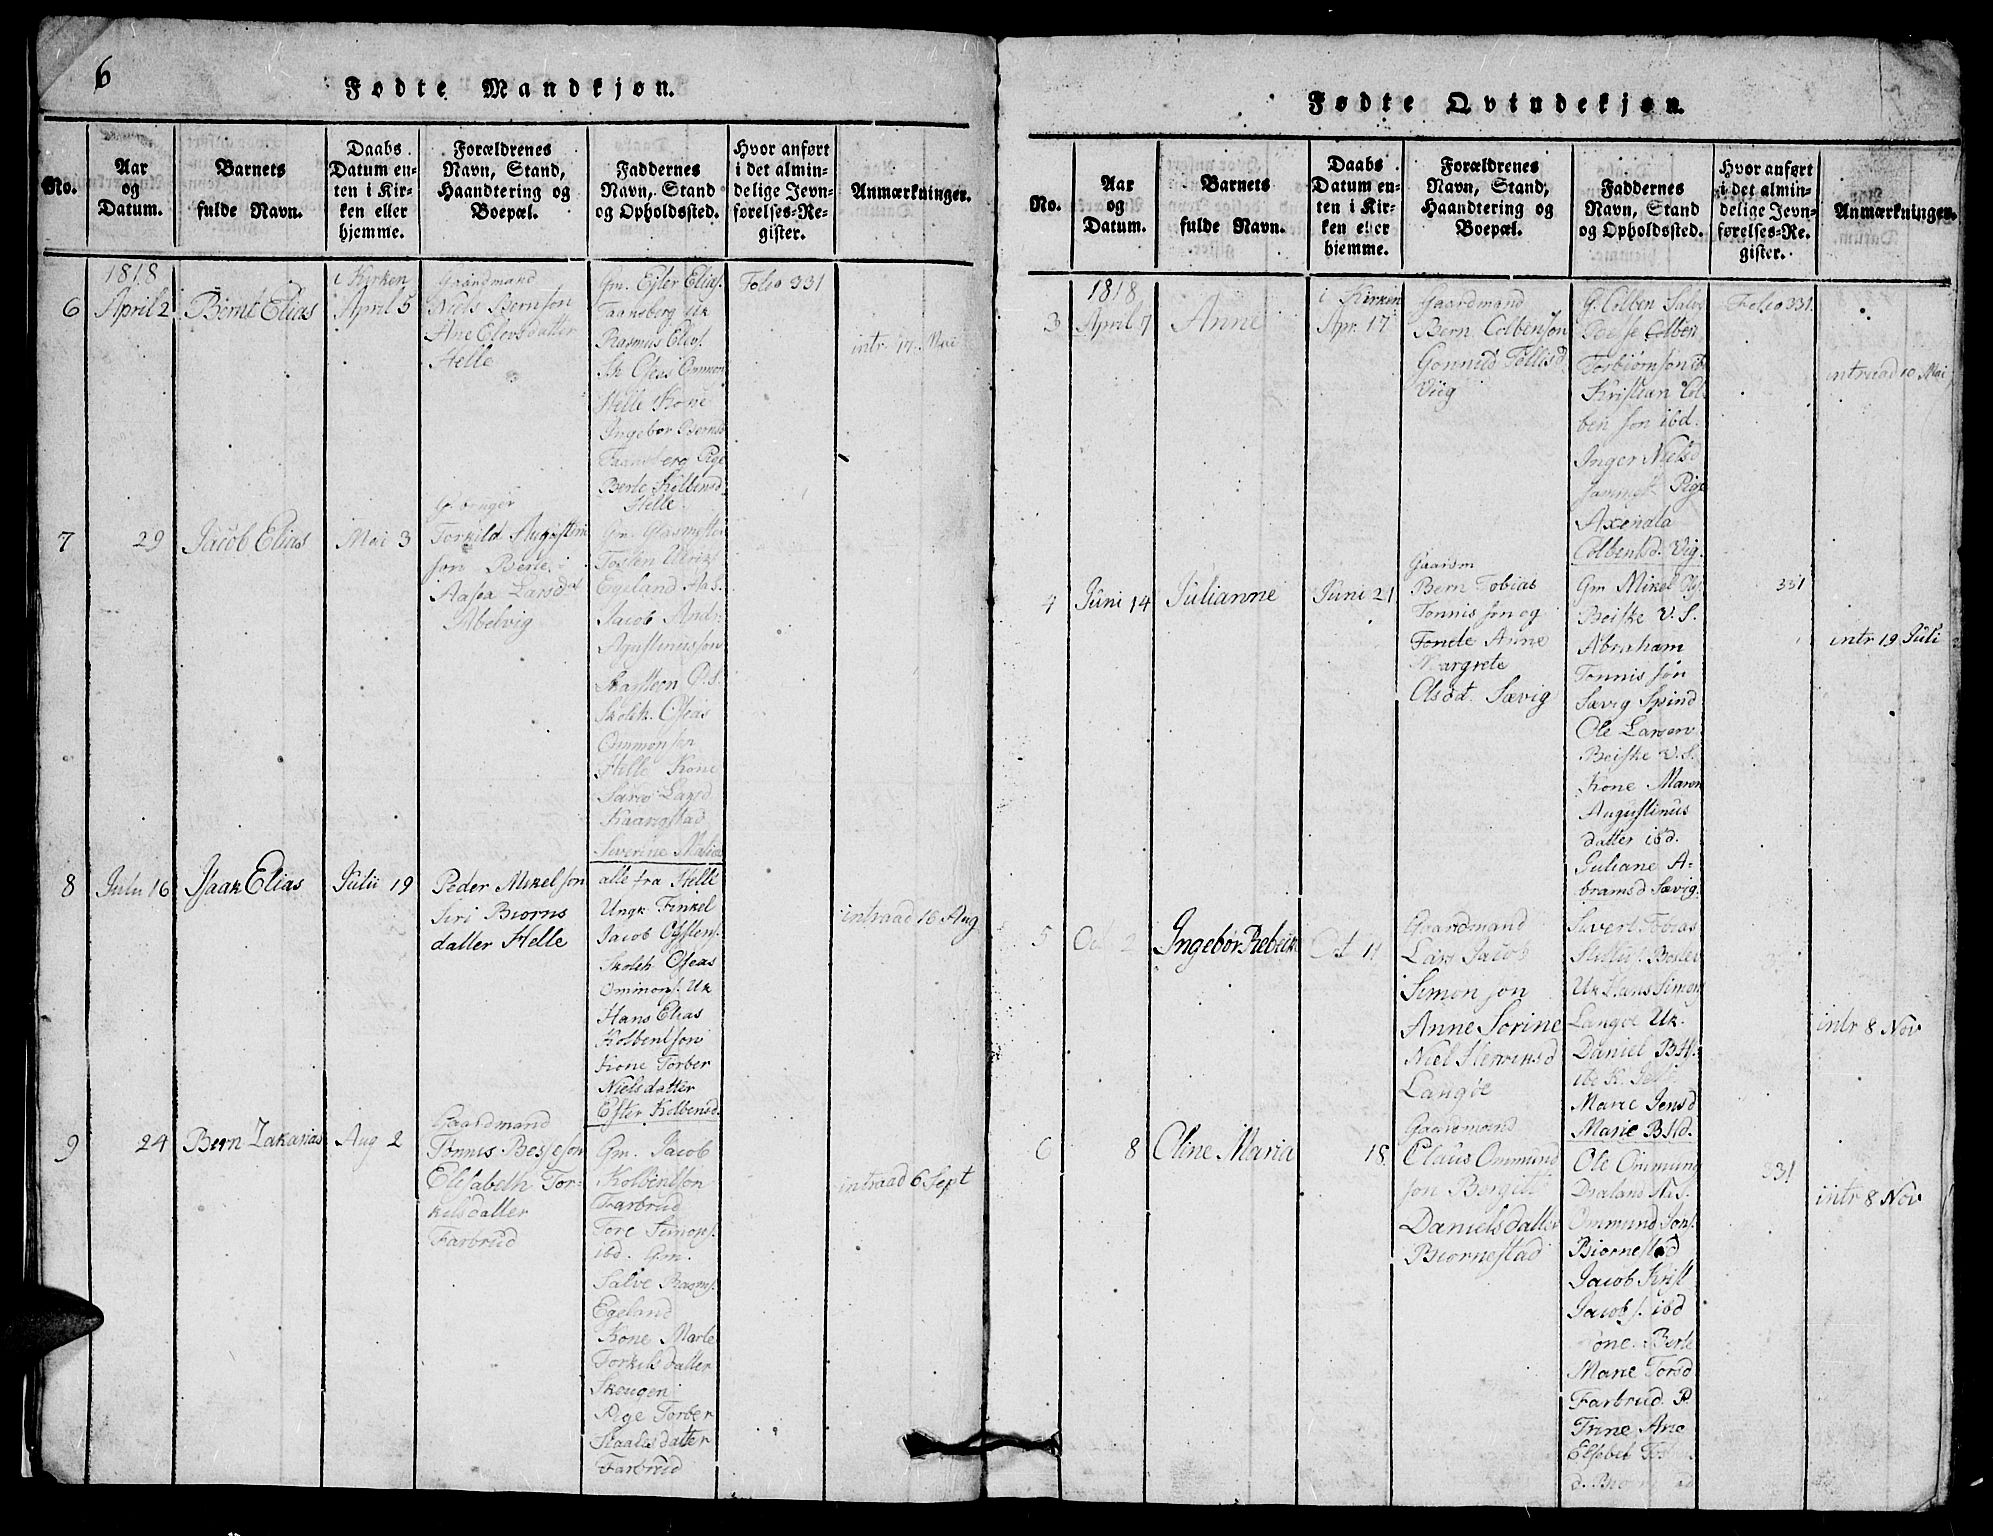 6
Fødte Mandkjøn.
No.
Aar
og
Datum.
Barnets
fulde Navn.
Daabs
Datum en-
ten i Kir-
ken eller
hjemme.
Forældrenes
Navn, Stand,
Haandtering og
Boepæl.
Faddernes
Navn, Stand
og Opholdssted.
Hvor anført
i det almin-
delige Jevn-
førelses-Re-
gister.
Anmærkninger.
1818
6
April 2
Bernt Elias
i Kirken
April 5
Gaardmand
Niels Bernson
Ane Elevsdatter
Helle
Gm. Ejler Elias.
Faansberg Uk
Rasmus Elias.
Sk Oseas Ommon
Helle Kone
Ingebor Berns
Faansberg Pige
Berte Kolbensd.
Helle.
Folio 331
intr. 17. Mai
7
29
Jacob Elias
Mai 3
Torkild Augustin
son Berte
Aasea Larsdat
Abelvig
Tosten Ulriks
Egeland
Jacob Andr
Agustinusson
Skoleh. Oseas
Ommonson
Helle Kone
Sara Larsd
Kaangstad
Severine Malia
8
Julii 16
Isaak Elias
Julii 19
Peder Mikelson
Siri Biorns
datter Helle
alle fra Helle
Ungk Tinkel
Jacob Offstens.
Skoleh Oseas
Ommons. Uk
Hans Elias
Kolbentson
Kone Torber
Nielsdatter
Ester Kolbensd.
intraad 16 Aug
9
24
Bern Zakarias
Aug 2
Gaardmand
Tonnis Besseson
Elisabeth Tor-
kelsdatter
Farbrud
Gm. Jacob
Kolbentson
Farbrud
Tore Simons.
ibd. Gm.
Salve Rasms.
Egeland
Kone Marte
Torkelsdatter
Skougen
Pige Torber
Staalesdatter
Farbrud
intraad 6 Sept
Fødte Qvindekjøn.
No.
Aar
og
Datum.
Barnets
fulde Navn.
Daabs
Datum en-
ten i Kir-
ken eller
hiemme.
Forældrenes
Navn, Stand,
Haandtering og
Boepæl.
Faddernes
Navn, Stand
og Opholdssted.
Hvor anført
i det almin-
delige Jevn-
førelses-Re-
gister.
Anmærkninger.
1818
3
April 7
Anne
i Kirken
Apr. 17
Gaardmand
Bern Colbenson
Gonnild Tollesd
Viig
G. Colben Salve
Besse Colben
Torbiornson ib
Kristian Col
ben son ibd.
Inger Nielsd
sammest. Pige
Axenala
Colbentsd. Vig.
Folio 331
intraad 10 Mai
4
Juni 14
Julianne
Juni 21
Gaardm
Bern Tobias
Tonnis son og
Anne
Margrete
Olsdt. Sævig
Gm Mikel
Beiske V. S.
Abraham
Tonnis søn
Sævig Spind
Ole Larsen
Beiske V. S.
Kone Maren
Augustinus
datter ibd.
Juliane A-
bramsd Sævig.
331
intr 19 Juli
5
Oct 2
Ingebør Rebekk
Oct 11
Gaardmand
Lars Jacob
Simon son
Anne Sorine
Niel Henriksd
Langøe
Sivert Tobias
Uk Hans Simons
Langøe Uk.
Daniel B H.
Marie Jensd
Marie B Hd.
intr 8 Nov
6
8
Oline Maria
18
Gaardmand
Claus Ommund
son Bergitt
Danielsdatter
Biornestad
Ole Ommund
Ommund Jons.
Biornestad
Jacob Krist
Jacobs. ibd
Kone. Berte
Marie Torsd
Farbrud. P.
Trine Ane
Elsebet
331
intr 8 Nov